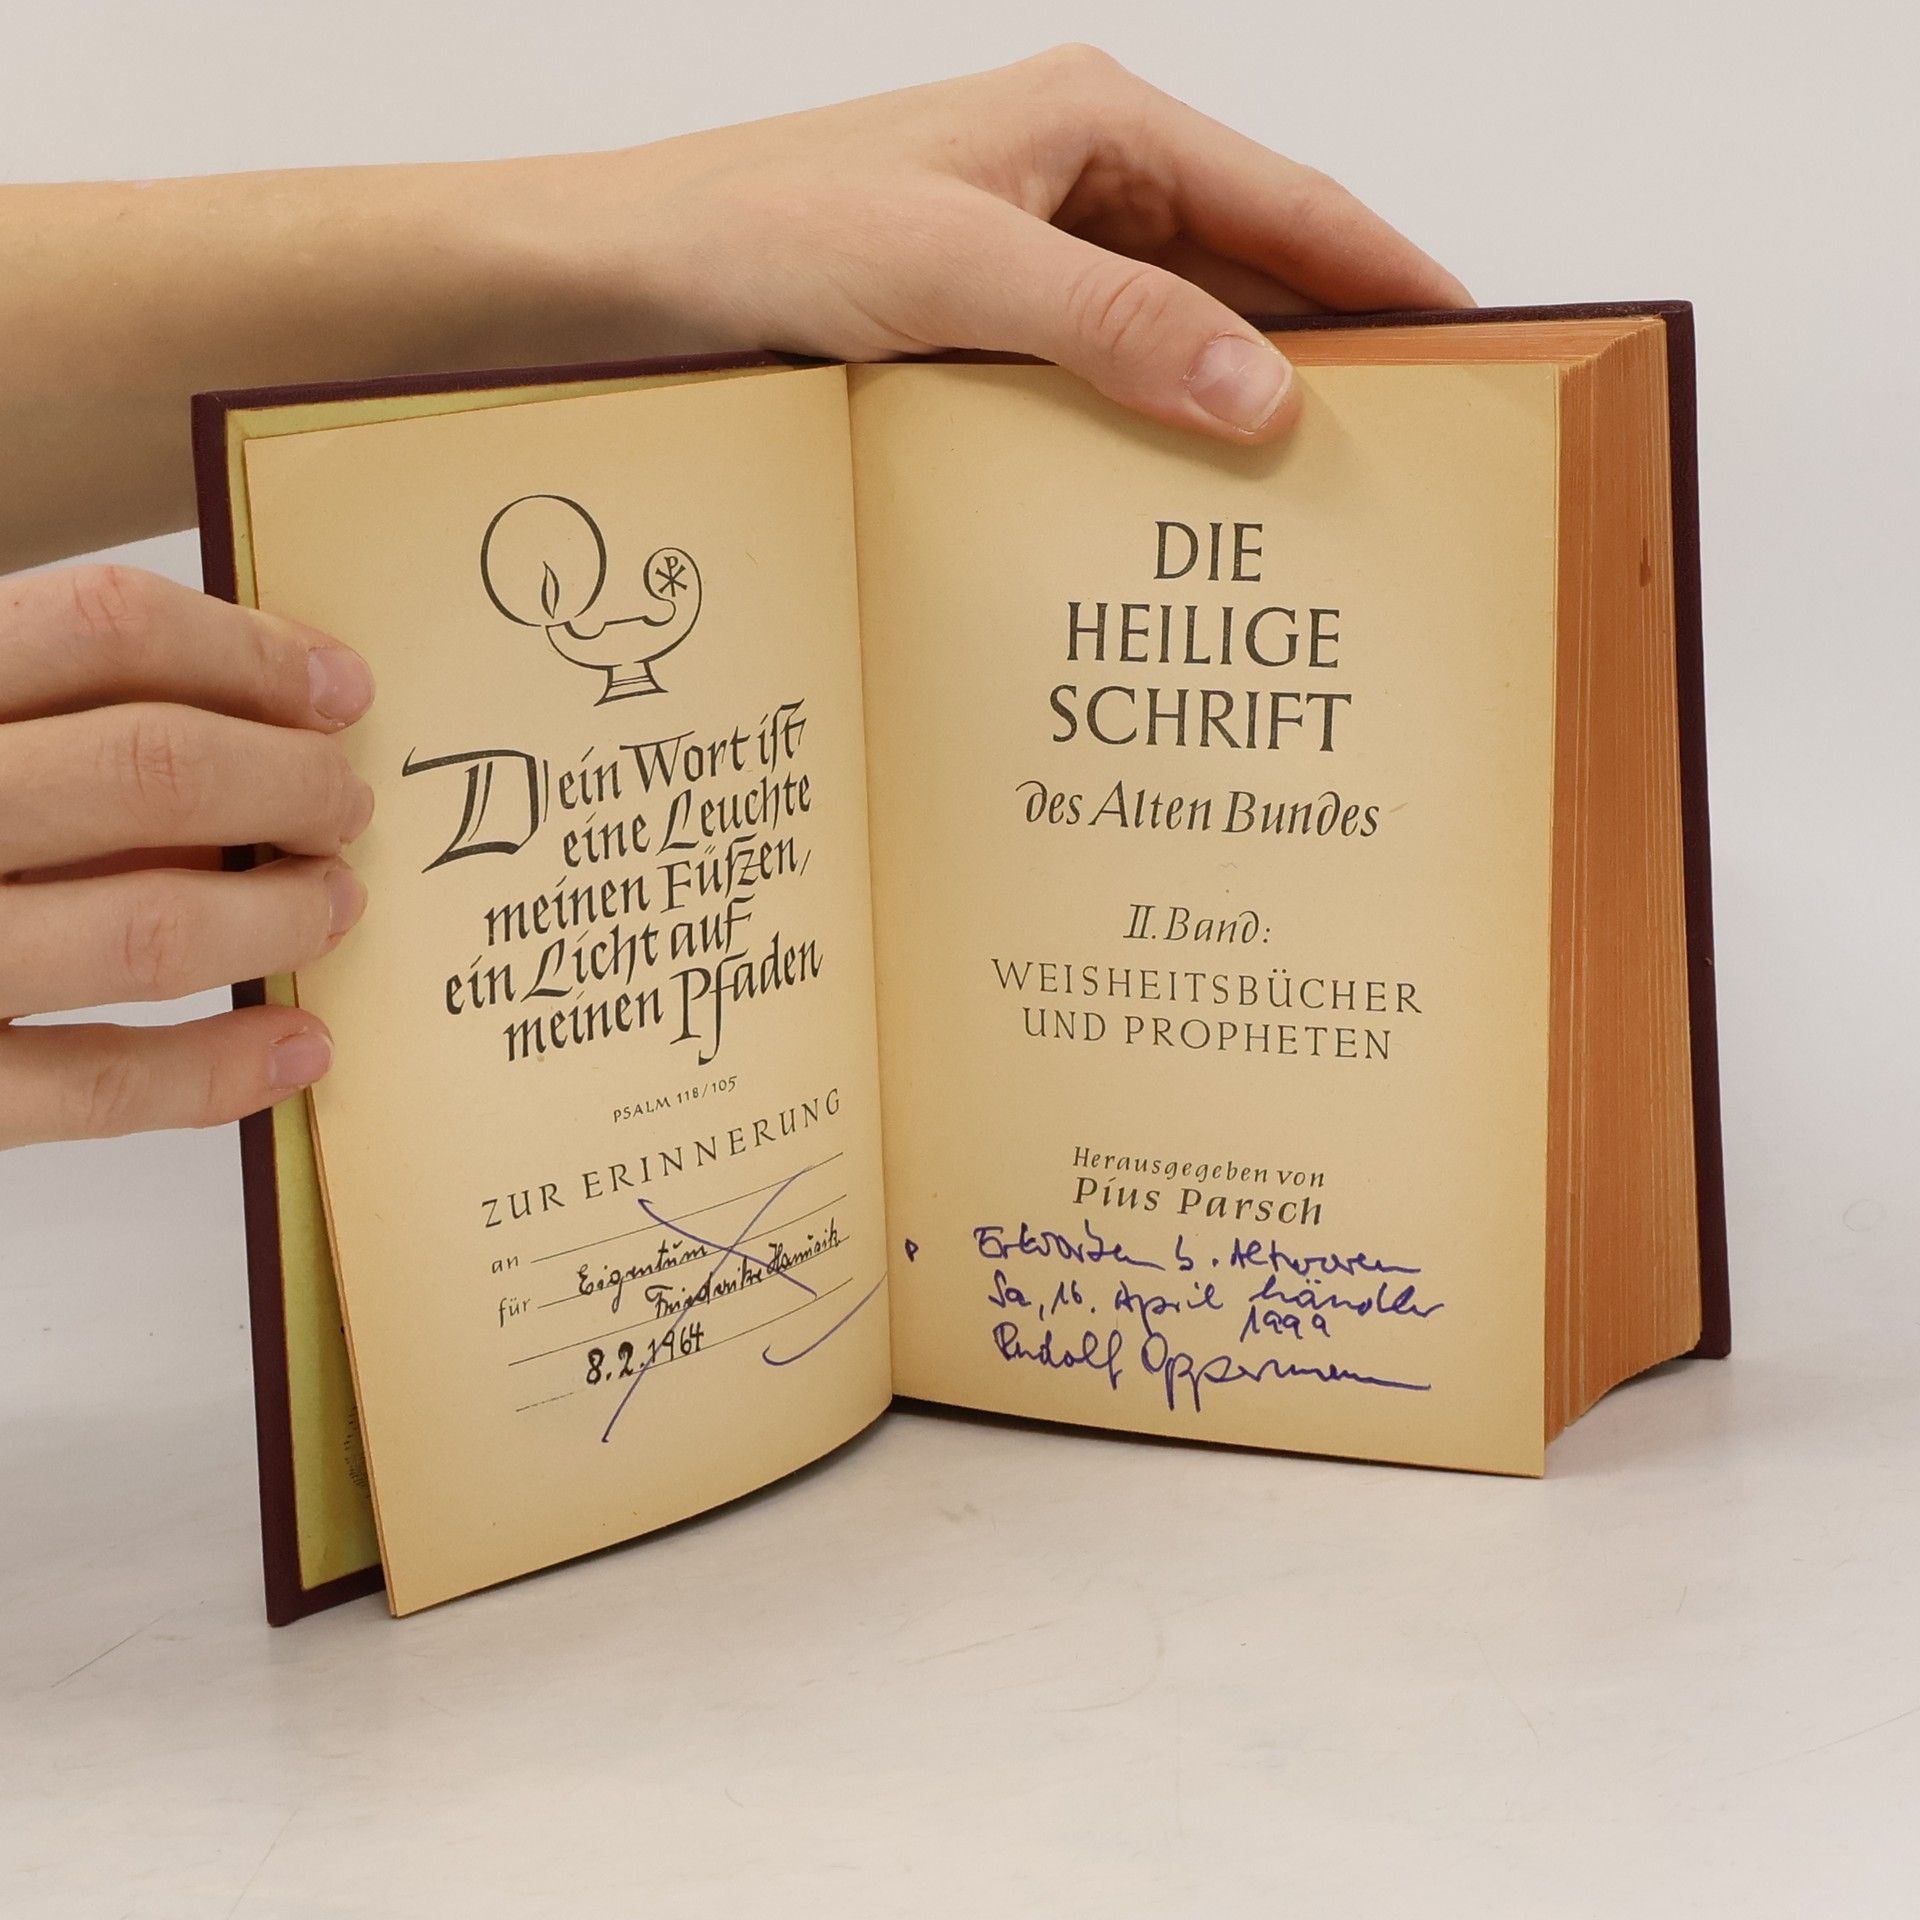 Dein Wort ist
eine Leuchte
meinen Füßen,
ein Licht auf
meinen Pfaden
PSALM 118/105
ZUR ERINNERUNG
an
Eigentum
für
Friederike
8.2.1964
DIE
HEILIGE
SCHRIFT
des Alten Bundes
II. Band:
WEISHEITSBÜCHER
UND PROPHETEN
Herausgegeben von
Pius Parsch
Erworben b. Altwaren
Sa, 16. April händler
1999
Rudolf Oppermann